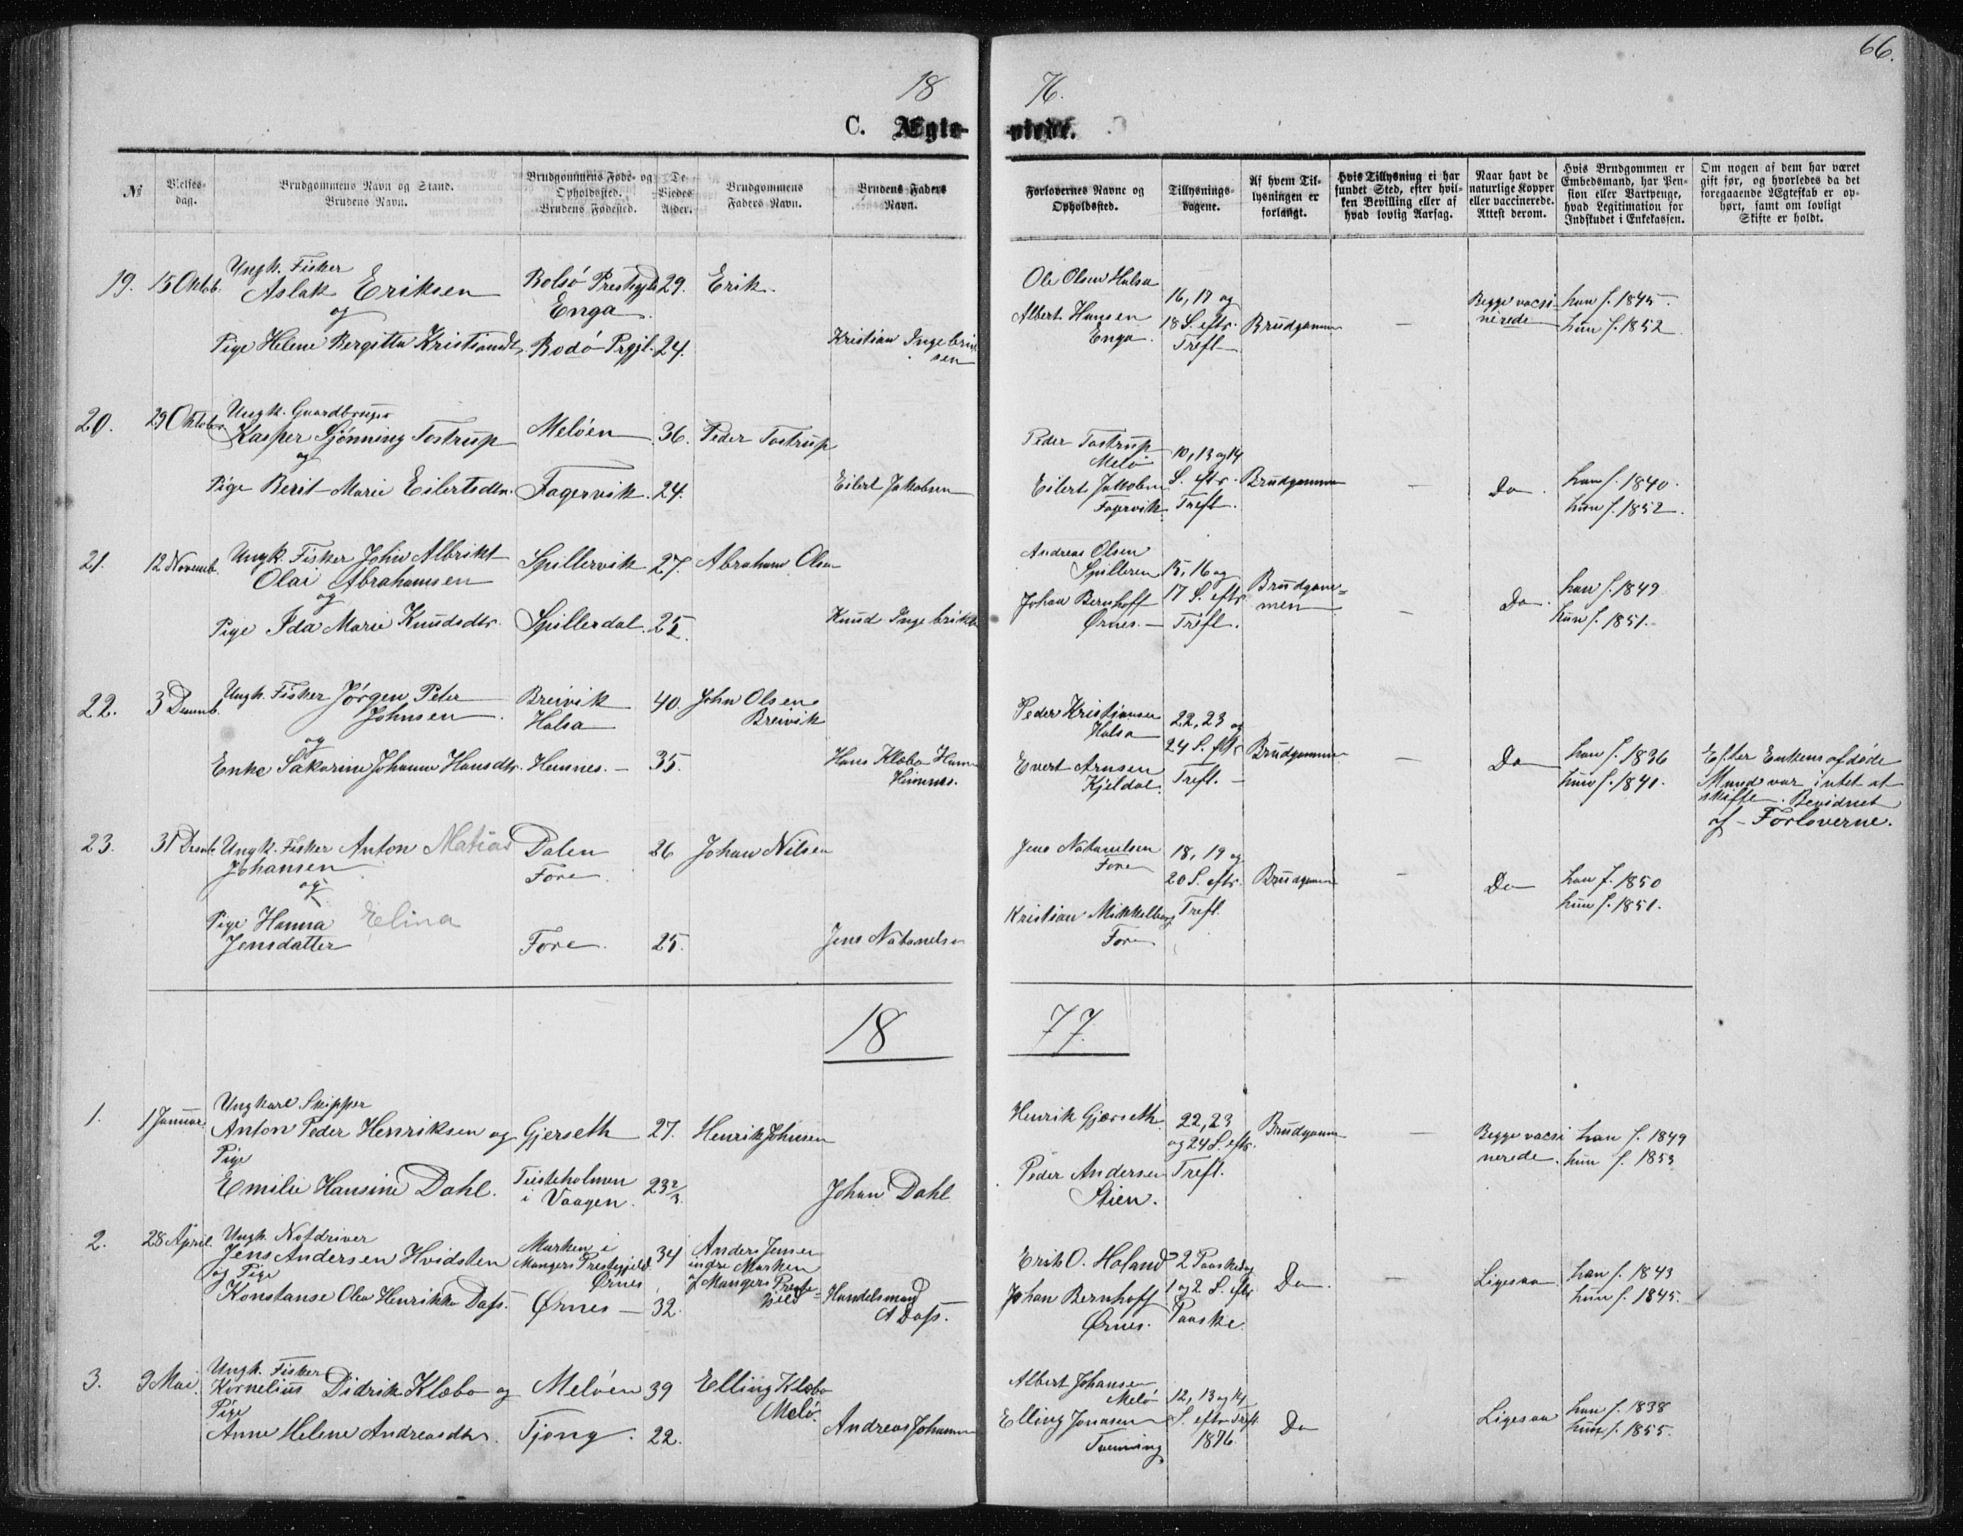 66.
18 76.
C. Ægteviede.
№
Vielses-
dag.
Brudgommens Navn og Stand.
Brudens Navn.
Brudgommens Føde- og
Opholdssted.
Brudens Fødested.
De
Viedes
Alder.
Brudgommens
Faders Navn.
Brudens Faders
Navn.
Forlovernes Navne og
Opholdssted.
Tillysnings-
dagene.
Af hvem Til-
lysningen er
forlangt.
Hvis Tillysning ei har
fundet Sted, efter hvil-
ken Bevilling eller af
hvad lovlig Aarsag.
Naar havt de
naturlige Kopper
eller vaccinerede.
Attest derom.
Hvis Brudgommen er
Embedsmand, har Pen-
sion eller Vartpenge,
hvad Legitimation for
Indskudet i Enkekassen.
Om nogen af dem har været
gift før, og hvorledes da det
foregaaende Ægteskab er op-
hørt, samt om lovligt
Skifte er holdt.
19. 15 Oktob.
Ungk. Fisker
Aslak Eriksen
og
Pige Helene Bergitta Kristiansdt.
Bolsø Prestegjld
Enga.
Bodó Prgjl.
29.
24.
Erik.
Kristian Ingebrikt
sen
Ole Olsen Halsa
Albert Hansen
Enga.
16, 17 og
18 S. eftr.
Trefl.
Brudgommen
—
Begge vacsi
nerede
han f. 1845.
hun f. 1852.
20. 29 Oktober
Ungk. Gaardbruger
Kasper Sjønning Tostrup
og
Pige Berit Marie Eilertsdtr.
Melóen
Fagervik.
36.
24.
Peder Tostrup
Eilert Jakobsen
Peder Tostrup
Melö
Eilert Jakobsen
Fagervik.
10, 13 og 14
S. eftr.
Trefl.
Brudgommen
—
Do.
han f. 1840.
hun f. 1852.
21. 12 Novemb.
Ungk. Fisker John Albrikt
Olai Abrahamsen
og
Pige Ida Marie Knudsdtr.
Spillervik
Spillerdal.
27.
25.
Abraham Olsen
Knud Ingebrikts
Andreas Olsen
Spilleren
Johan Bernhoff
Ørnes.
15, 16 og
17 S. eftr
Trefl.
Brudgom=
men
—
Do.
han f. 1849
hun f. 1851.
22. 3 Decemb.
Ungk. Fisker Jørgen Peter
Johnsen.
og
Enke Sakarine Johanna Hansdtr.
Breivik
Halsa
Hemnes.
40.
35.
John Olsen
Breivik
Hans Klæbo
Hemnes.
Peder Kristiansen
Halsa
Evert Arnsen
Kjeldal.
22, 23 og
24 S. eftr
Trefl.
Brudgommen
—
Do
han f. 1836
hun f. 1841.
Efter Enkens afdøde
Mand var intet at
skifte. Bevidnet
af Forloverne.
23. 31 Decmb
Ungk. Fisker Anton Matias
Johansen
og
Pige Hanna Elina
Jensdatter
Dalen
Fore.
Fore.
26
25.
Johan Nilsen
Jens Natanelsen
Jens Natanelsen
Fore
Kristian Mikkelborg
Fore
18, 19 og
20 S. eftr.
Trefl.
Brudgommen
—
Do
han f. 1850
hun f. 1851.
18 77.
1. 1 Januar.
Ungkarl Skipper
Anton Peder Henriksen og
Pige
Emilie Hansine Dahl.
Gjerseth
Teisteholmen
i Vaagen.
27.
23 2/3
Henrik Johnsen
Johan Dahl
Henrik Gjærseth.
Peder Andersen
Stien.
22, 23
og 24 S. eftr.
Trefl.
Brudgommen
—
Begge vacsi
nerede.
han f. 1849
hun f. 1853
2. 28 April.
Ungk. Notdriver
Jens Andersen Hvidsten
og Pige
Konstanse Olea Henrikke Dass.
Marken i
Mangers Prestegjeld.
Ørnes
Ørnes
34
32.
Anders Jensen
indre Marken
i Mangers Preste=
gjeld
Handelsmand
A Dass.
Erik O. Holand
Johan Bernhoff
Ørnes.
2 Paaskedag
1 og 2 S. eftr.
Paaske.
Do
—
Ligesaa
han f. 1843
hun f. 1845.
3. 9 Mai.
Ungk. Fisker
Kornelius Didrik Klæbo og
Pige
Anne Helene Andreasdtr.
Melóen
Tjong.
39
22.
Elling Klæbo
Melø.
Andreas Johansen
Albert Johansen
Melö
Elling Jonasen
12, 13 og 14
S. eftr Trefl.
1876.
Do
Ligesaa
han f. 1838
hun f. 1855.